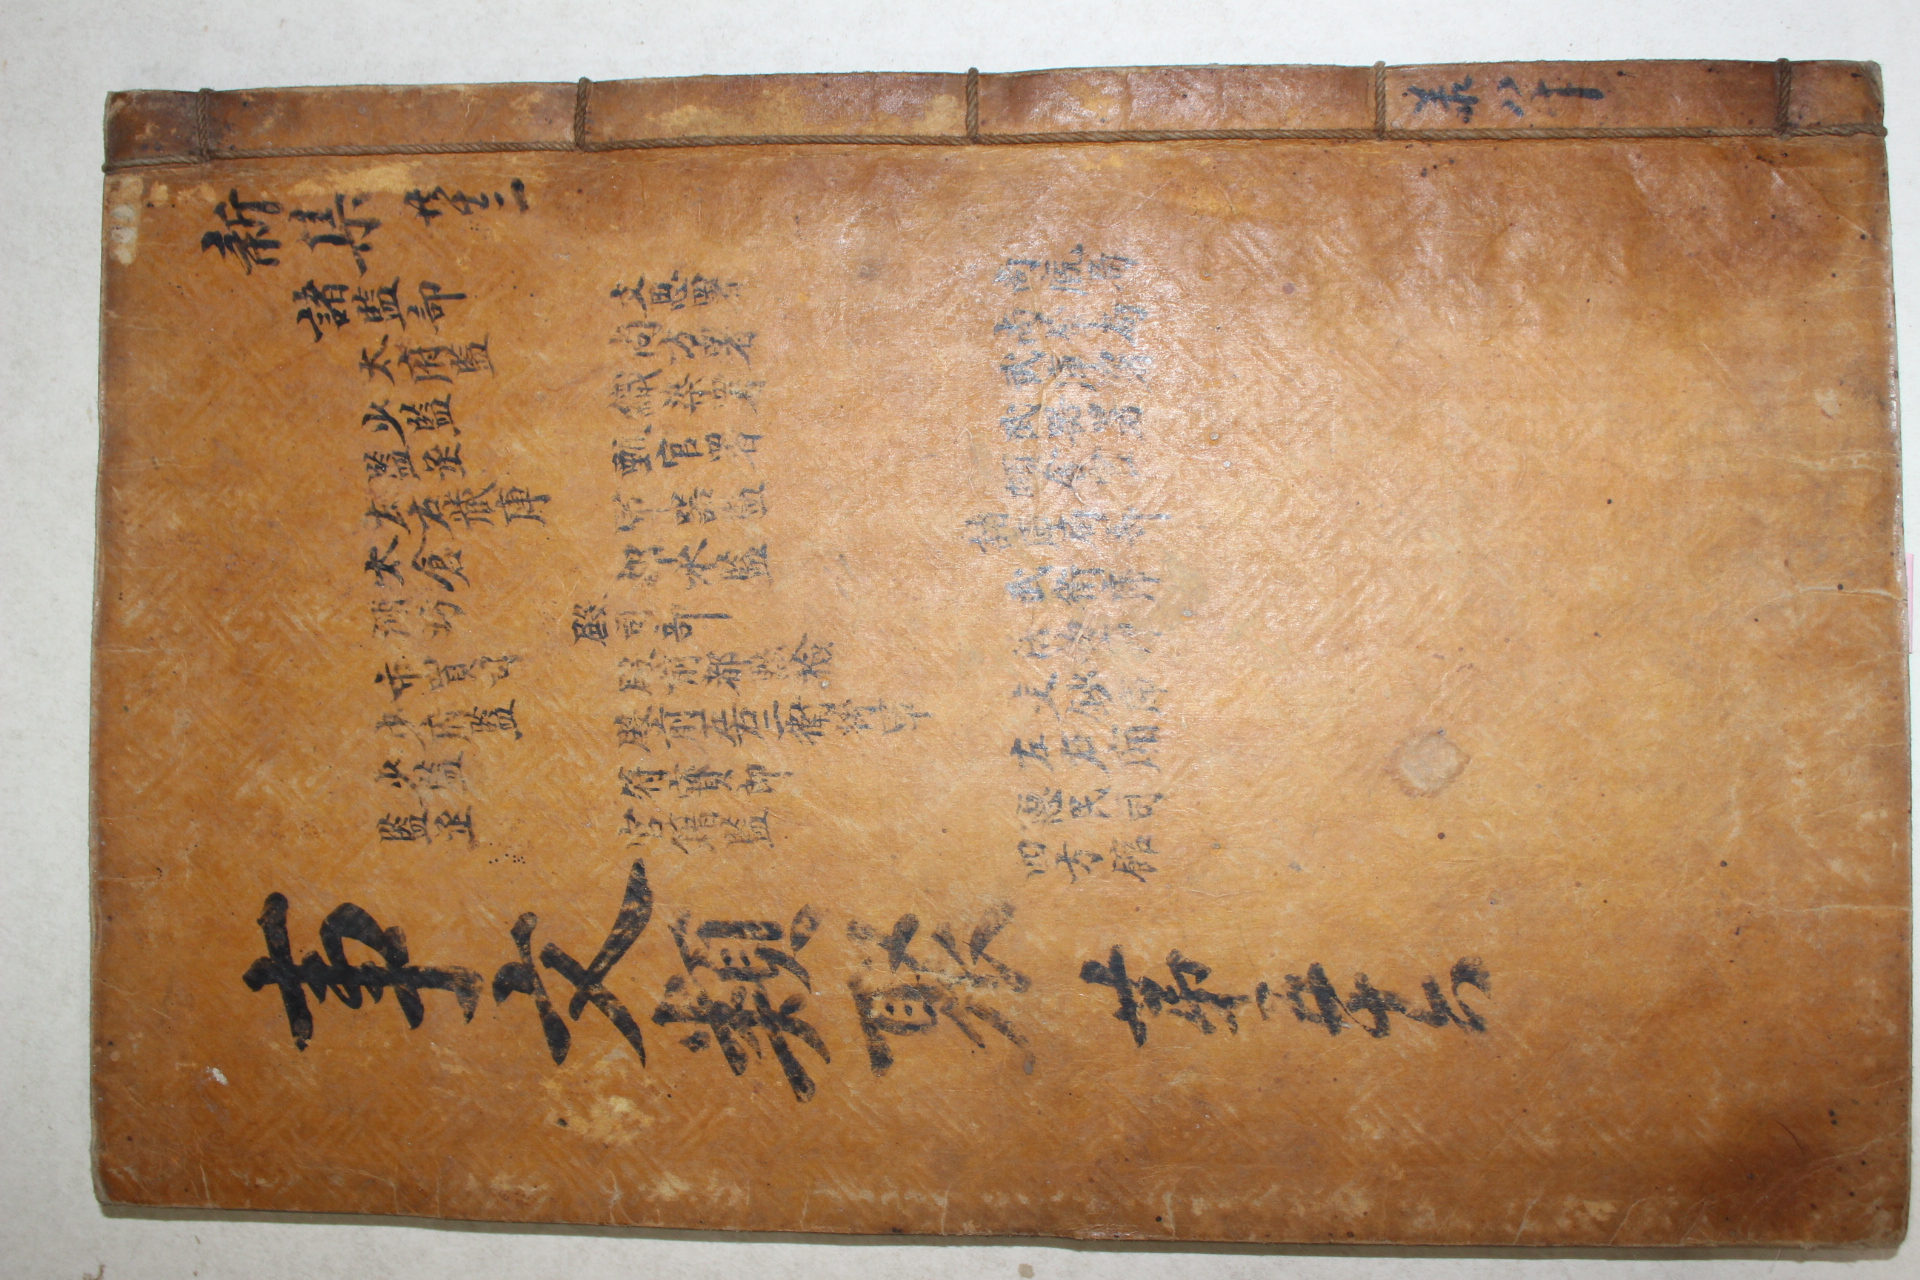 新集
諸監部
太府監
少監
監丞
左右藏庫
太倉
市買司
少府監
少監
監丞
文思署
尚方署
織染署
甄官署
軍器監
都水監
殿司部
殿前都點檢
殿前左右二衛將軍
符寶郎
宮籍監
尚廐局
尚輦局
武庫署
武器署
諸庫局部
武衛庫
左右廂
惠民司
四方館
事文類聚 第五十六
共八十